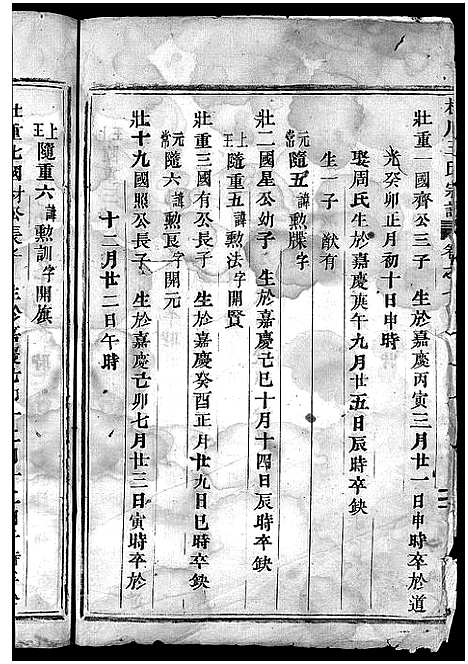 王氏宗譜
壯重一國齊公三子　生於嘉慶丙寅三月廿一日申時卒於道
光癸卯正月初十日申時
娶周氏生於嘉慶庚午九月廿五日辰時卒缺
生一子　猷有
元常隨五諱勲牒字
壯二國星公幼子　生於嘉慶己巳十月十四日辰時卒缺
上王隨重五諱勲法字開賢
壯重三國有公長子　生於嘉慶癸酉正月廿九日巳時卒缺
元常隨六諱勲瓦字開元
壯十九國照公長子　生於嘉慶己卯七月廿三日寅時卒於
十二月廿二日午時
上王隨重六諱勲訓字開旗
壯重七國財公長子　生於嘉慶